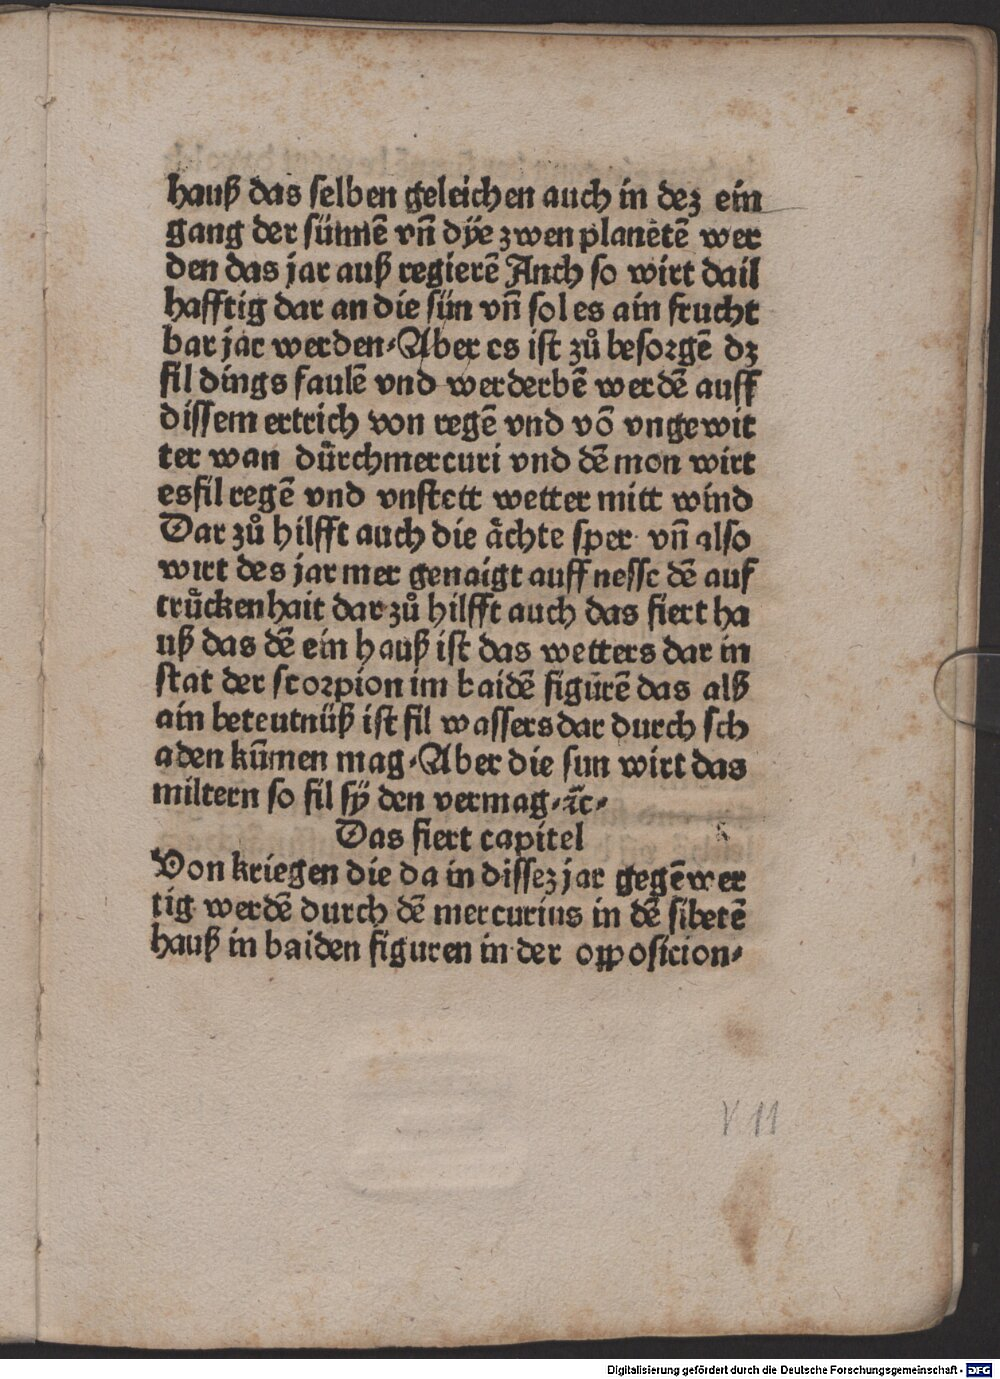 hauß das selben geleichen auch in dez ein
gang der sünnē vñ dÿe zwen planetē wer
den das jar auß regierē Auch so wirt dail
hafftig dar an die sün vñ sol es ain frucht
bar jar werden Aber es ist zů besorgē dz
fil dings faulē vnd werderbē werdē auff
dissem ertrich von regē vnd vō vngewit
ter wan dürchmercuri vnd dē mon wirt
es fil regē vnd vnstett wetter mitt wind
Dar zů hilfft auch die ächte sper vñ also
wirt des jar mer genaigt auff nesse dē auf
trůckenhait dar zů hilfft auch das fiert ha
uß das dē ein hauß ist das wetters dar in
stat der scorpion im baidē figürē das alß
ain beteutnüß ist fil wassers dar durch sch
aden kūmen mag Aber die sun wirt das
miltern so fil sÿ den vermag ⁊c
Das fiert capitel
Von kriegen die da in dissez jar gegēwer
tig werdē durch dē mercurius in dē sibetē
hauß in baiden figuren in der opposicion
V 11
Digitalisierung gefördert durch die Deutsche Forschungsgemeinschaft - DFG